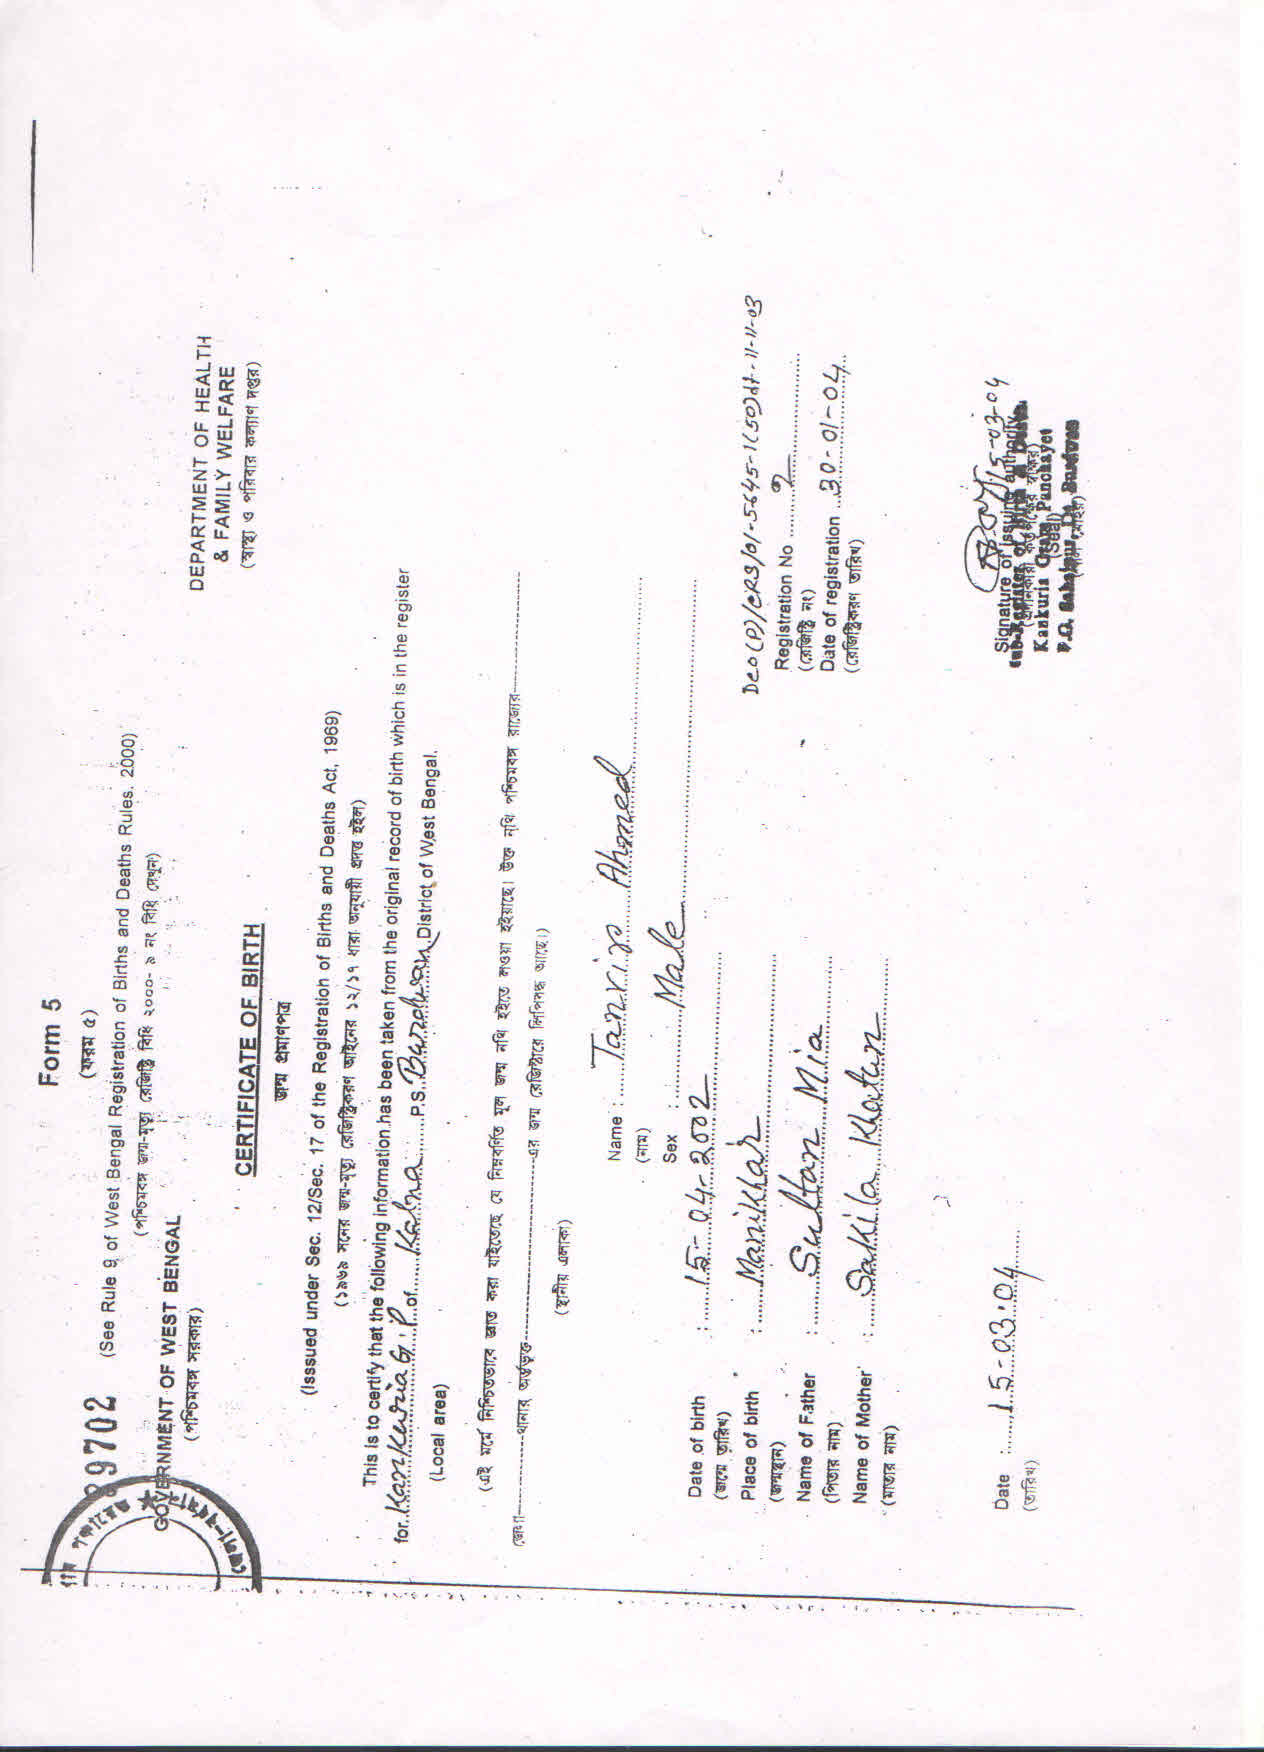 Form 5
(ফরম ৫)
(See Rule 9 of West Bengal Registration of Births and Deaths Rules. 2000)
(পশ্চিমবঙ্গ জন্ম-মৃত্যু রেজিষ্ট্রি বিধি ২০০০- ৯ নং বিধি দেখুন)
9702
GOVERNMENT OF WEST BENGAL
(পশ্চিমবঙ্গ সরকার)
DEPARTMENT OF HEALTH
& FAMILY WELFARE
(স্বাস্থ্য ও পরিবার কল্যাণ দপ্তর)
CERTIFICATE OF BIRTH
জন্ম প্রমাণপত্র
(Isssued under Sec. 12/Sec. 17 of the Registration of Births and Deaths Act, 1969)
(১৯৬৯ সনের জন্ম-মৃত্যু রেজিষ্ট্রিকরণ আইনের ১২/১৭ ধারা অনুযায়ী প্রদত্ত হইল)
This is to certify that the following information has been taken from the original record of birth which is in the register
for Kankuria G.P of Kalna P.S. Burdwan District of West Bengal.
(Local area)
(এই মর্মে নিশ্চিতভাবে জ্ঞাত করা যাইতেছে যে নিম্নবর্ণিত মূল জন্ম নথি হইতে লওয়া হইয়াছে। উক্ত নথি পশ্চিমবঙ্গ রাজ্যের
জেলা থানার অর্ন্তভূক্ত এর জন্ম রেজিস্টারে লিপিবদ্ধ আছে।)
(স্থানীয় এলাকা)
Name : Tanvir Ahmed
(নাম)
Sex : Male
Date of birth : 15-04-2002
(জন্মে তারিখ)
Place of birth : Manikhar
(জন্মস্থান)
Name of Father : Sultan Mia
(পিতার নাম)
Name of Mother : Sakila Khatun
(মাতার নাম)
DCO(P)/CRS/01-5645-1(50)dt-11-11-03
Registration No 2
(রেজিষ্ট্রি নং)
Date of registration 30-01-04
(রেজিষ্ট্রিকরণ তারিখ)
Date : 15-03-04
(তারিখ)
15-03-04
Signature of issuing authority
Kankuria Gram Panchayet
(Seal)